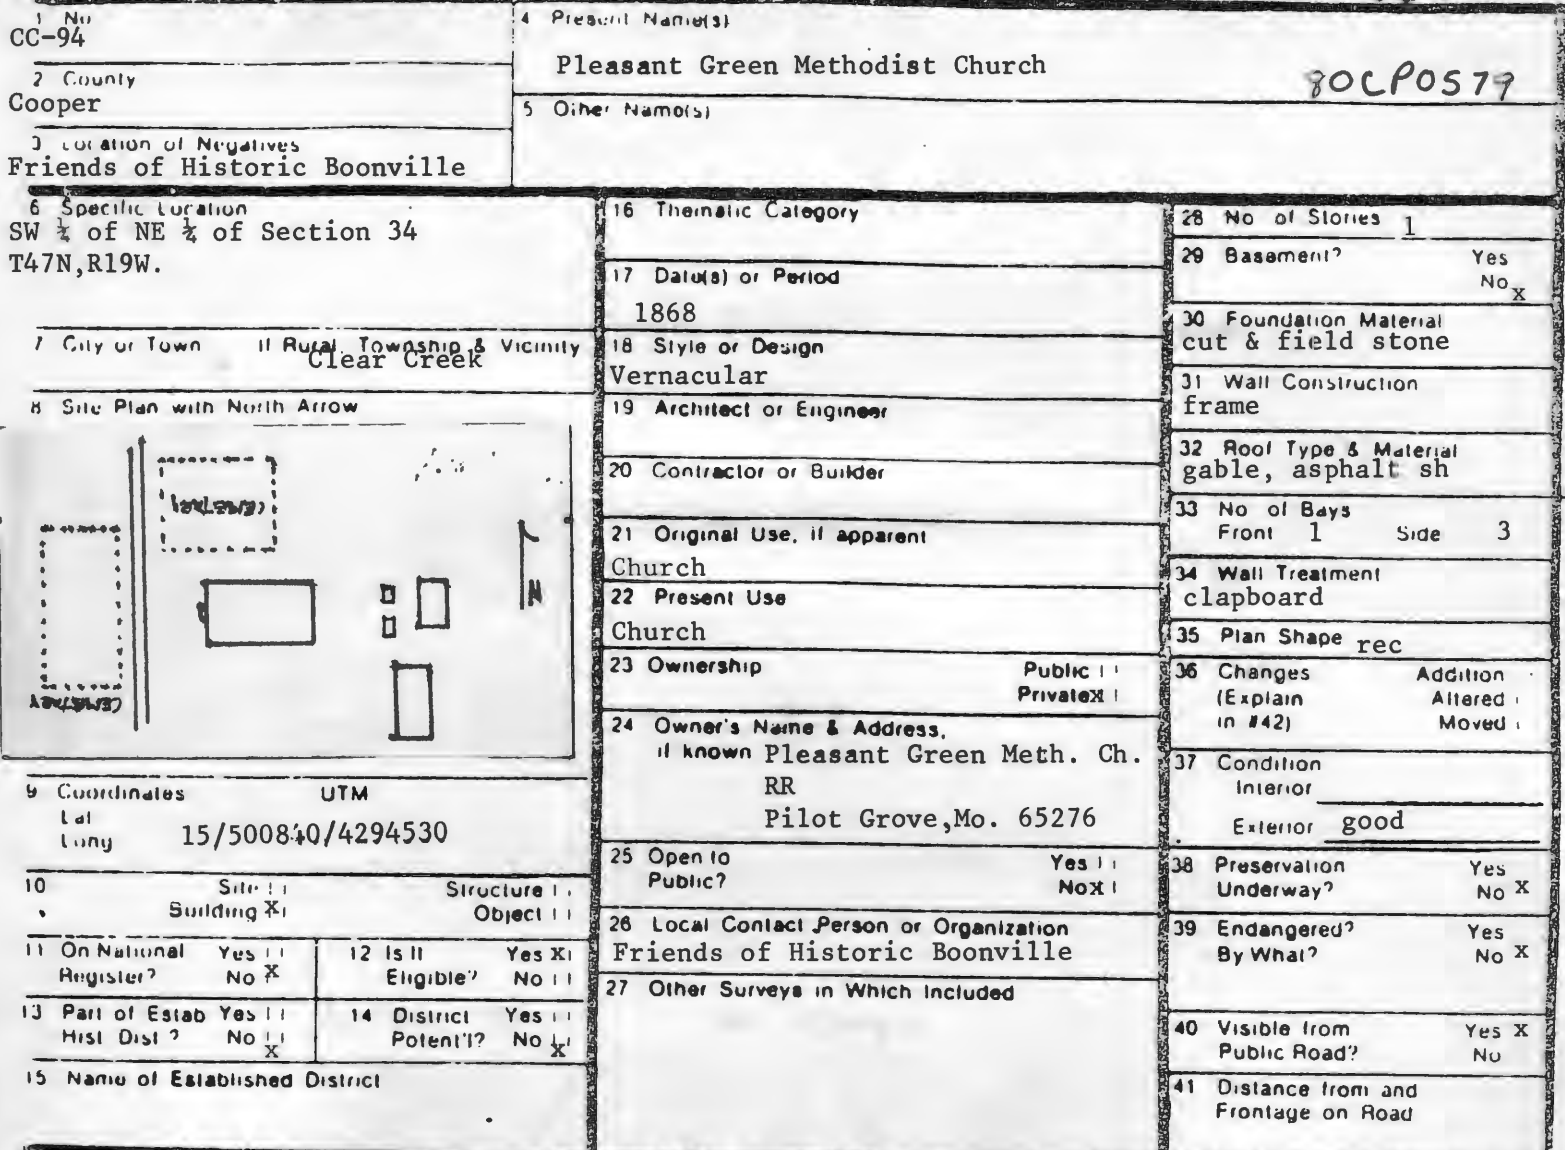 1 No
CC-94
2 County
Cooper
3 Location of Negatives
Friends of Historic Boonville
4 Present Name(s)
Pleasant Green Methodist Church
80CP0579
5 Other Name(s)
6 Specific Location
SW ¼ of NE ¼ of Section 34
T47N,R19W.
7 City or Town If Rural, Township & Vicinity
Clear Creek
8 Site Plan with North Arrow
CEMETREY
CEMETREY
N
9 Coordinates UTM
Lat
Long
15/500840/4294530
10 Site
Structure
Building X
Object
11 On National Register? Yes
No X
12 Is It Eligible? Yes X
No
13 Part of Estab Hist Dist? Yes
No X
14 District Potent'l? Yes
No X
15 Name of Established District
16 Thematic Category
17 Date(s) or Period
1868
18 Style or Design
Vernacular
19 Architect or Engineer
20 Contractor or Builder
21 Original Use, if apparent
Church
22 Present Use
Church
23 Ownership Public
Private X
24 Owner's Name & Address,
if known Pleasant Green Meth. Ch.
RR
Pilot Grove,Mo. 65276
25 Open to Public? Yes
No X
26 Local Contact Person or Organization
Friends of Historic Boonville
27 Other Surveys in Which Included
28 No of Stories 1
29 Basement? Yes
No X
30 Foundation Material
cut & field stone
31 Wall Construction
frame
32 Roof Type & Material
gable, asphalt sh
33 No of Bays
Front 1 Side 3
34 Wall Treatment
clapboard
35 Plan Shape rec
36 Changes Addition
(Explain Altered
in #42) Moved
37 Condition
Interior
Exterior good
38 Preservation Yes
Underway? No X
39 Endangered? Yes
By What? No X
40 Visible from Yes X
Public Road? No
41 Distance from and
Frontage on Road